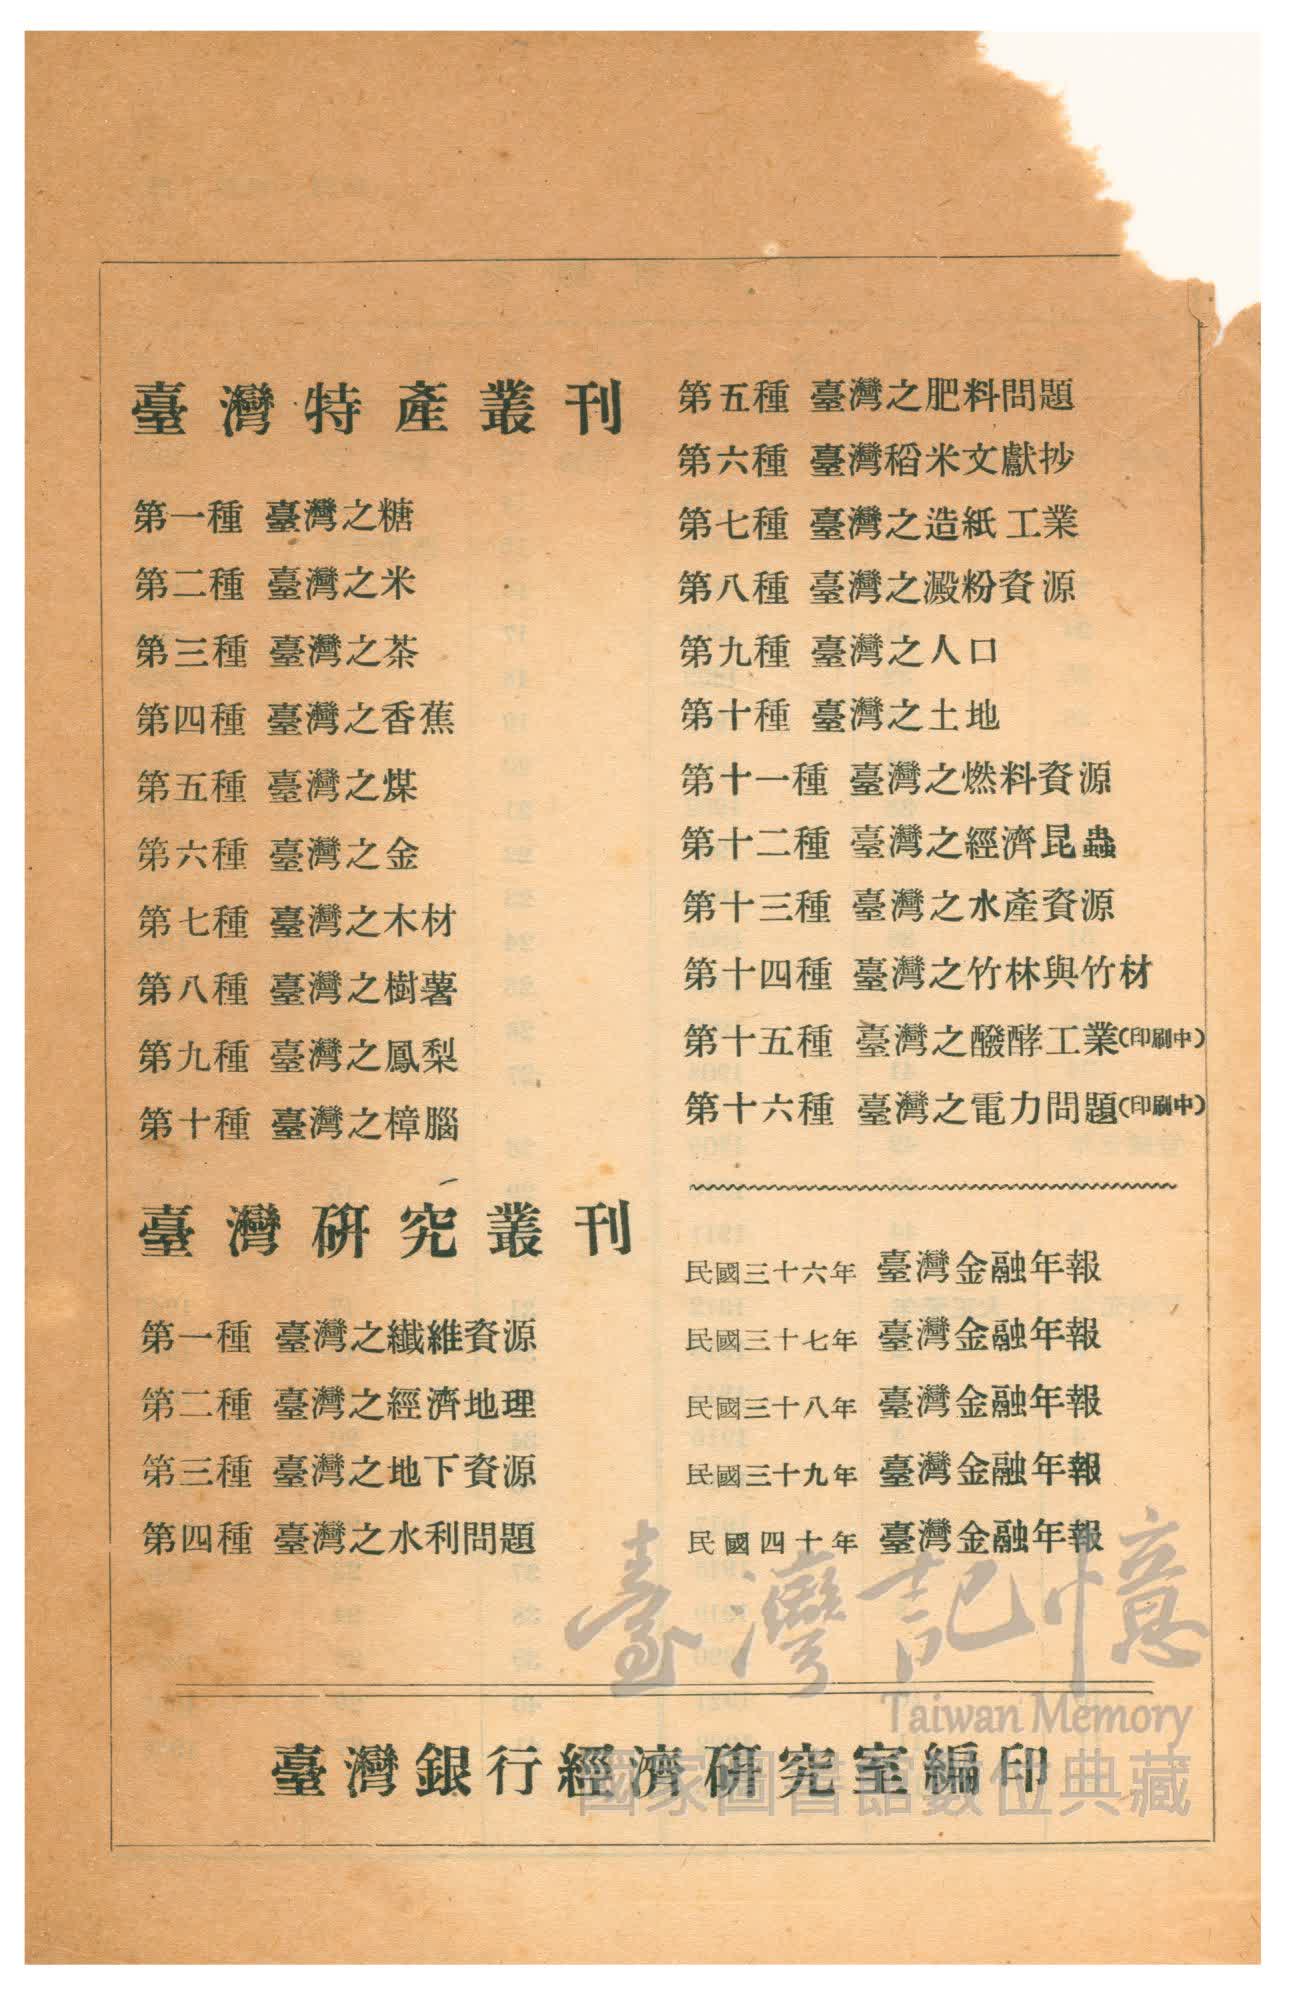 臺灣特產叢刊
第一種 臺灣之糖
第二種 臺灣之米
第三種 臺灣之茶
第四種 臺灣之香蕉
第五種 臺灣之煤
第六種 臺灣之金
第七種 臺灣之木材
第八種 臺灣之樹薯
第九種 臺灣之鳳梨
第十種 臺灣之樟腦
臺灣研究叢刊
第一種 臺灣之纖維資源
第二種 臺灣之經濟地理
第三種 臺灣之地下資源
第四種 臺灣之水利問題
第五種 臺灣之肥料問題
第六種 臺灣稻米文獻抄
第七種 臺灣之造紙工業
第八種 臺灣之澱粉資源
第九種 臺灣之人口
第十種 臺灣之土地
第十一種 臺灣之燃料資源
第十二種 臺灣之經濟昆蟲
第十三種 臺灣之水產資源
第十四種 臺灣之竹林與竹材
第十五種 臺灣之醱酵工業(印刷中)
第十六種 臺灣之電力問題(印刷中)
民國三十六年 臺灣金融年報
民國三十七年 臺灣金融年報
民國三十八年 臺灣金融年報
民國三十九年 臺灣金融年報
民國四十年 臺灣金融年報
臺灣銀行經濟研究室編印
臺灣記憶
Taiwan Memory
國家圖書館數位典藏